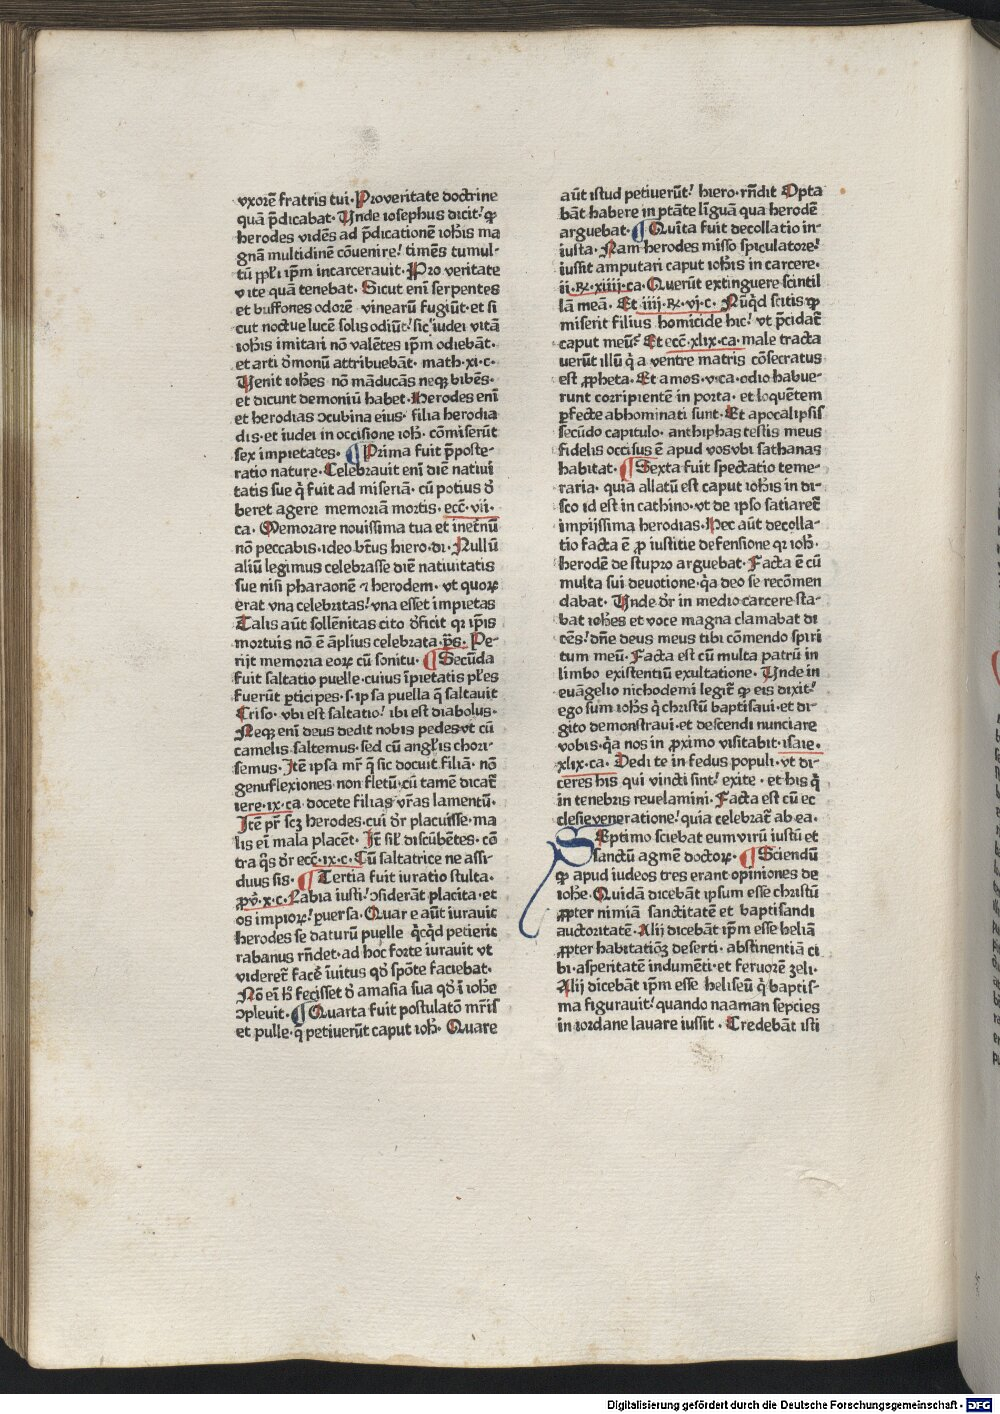 vxorē fratris tui· Pro veritate doctrine
quā p̄dicabat· Unde iosephus dicit! ꝙ
herodes vidēs ad p̄dicationē ioh̄is ma
gnā multidinē cōuenire! timēs tumul-
tū ꝓpt̄ ip̄m incarcerauit· Pro veritate
vite quā tenebat· Sicut enī serpentes
et buffones odorē vinearū fugiūt· et si
cut noctue lucē solis odiūt! sic iudei vitā
ioh̄is imitari nō valētes ip̄m odiebāt·
et arti d̄monū attribuebāt· math·xi·c·
Uenit ioh̄es nō māducās neqꝫ bibēs·
et dicunt demoniū habet· Herodes enī
et herodias ↄcubina eius· filia herodia
dis· et iudei in occisione ioh̄· cōmiserūt
sex impietates· ¶ Prima fuit p̄poste-
ratio nature· Celebrauit enī diē natiui
tatis sue q̄ fuit ad miseriā· cū potius d̄
beret agere memoriā mortis· ecc̄·vii·
ca· Memorare nouissima tua et inet̄nū
nō peccabis· ideo bt̄us hiero·di· Nullū
aliū legimus celebrasse diē natiuitatis
sue nisi pharaonē ⁊ herodem· vt quoꝝ
erat vna celebritas! vna esset impietas
Talis aūt sollēnitas cito d̄ficit qꝛ ip̄is
mortuis nō ē āplius celebrata· p̄s· Pe-
rijt memoria eoꝝ cū sonitu· ¶ Secūda
fuit saltatio puelle· cuius īpietatis pl̄es
fuerūt ꝑticipes·s·ip sa puella q̄ saltauit
Criso· vbi est saltatio! ibi est diabolus·
Neqꝫ enī deus dedit nobis pedes vt cū
camelis saltemus· sed cū angl̄is chori-
semus· Itē ipsa mr̄ q̄ sic docuit filiā· nō
genuflexiones non fletū· cū tamē dicat̄
iere·ix·ca docete filias vr̄as lamentū·
Itē pr̄ scꝫ herodes· cui d̄r placuisse· ma
lis eī mala placēt· It̄ sil̄ discūbētes· cō
tra q̄s d̄r ecc̄·ix·c· Cū saltatrice ne assi-
duus sis· ¶ Tertia fuit iuratio stulta·
ꝓv̄·x·c· Labia iusti! ↄsiderāt placita· et
os impioꝝ! ꝑuersa· Quar e aūt iurauit
herodes se daturū puelle q̇cq̇d petierit
rabanus rn̄det· ad hoc forte iurauit vt
videret̄ facē īuitus qd̄ spōte faciebat·
Nō eī h̄ fecisset d̄ amasia sua qd̄ ī iohē
ↄpleuit· ¶ Quarta fuit postulatō mr̄is
et pulle· q̄ petiuerūt caput ioh̄· Quare
aūt istud petiuerūt! hiero·rn̄dit Opta
bāt habere in ptāte līguā qua herodē
arguebat· ¶ Quīta fuit decollatio in-
iusta· Nam herodes misso spiculatore!
iussit amputari caput ioh̄is in carcere·
ii·R̄·xiiij·ca· Querūt extinguere scintil
lā meā· Et iiij·R̄·vj·c· Nūq̇d scitis ꝙ
miserit filius homicide hic! vt p̄cidat̄
caput meū! Et ecc̄·xlix·ca·male tracta
uerūt illū q̇ a ventre matris cōsecratus
est ꝓpheta· Et amos·v·ca·odio habue-
runt corripientē in porta· et loquētem
ꝑfecte abhominati sunt· Et apocalipsis
secūdo capitulo· anthiphas testis meus
fidelis occisus ē apud vos vbi sathanas
habitat· ¶ Sexta fuit spectatio teme-
raria· quia allatū est caput ioh̄is in di-
sco id est in cathino· vt de ipso satiaret̄
impijssima herodias· Hec aūt decolla-
tio facta ē ꝓ iustitie defensione qꝛ ioh̄·
herodē de stupro arguebat· Facta ē cū
multa sui deuotione· q̇a deo se recōmen
dabat· Unde d̄r in medio carcere sta-
bat ioh̄es et voce magna clamabat di
cēs! dn̄e deus meus tibi cōmendo spiri
tum meū· Facta est cū multa patrū in
limbo existentiū exultatione· Unde in
euāgelio nichodemi legit̄ ꝙ eis dixit!
ego sum ioh̄s q̇ christū baptisaui· et di-
gito demonstraui· et descendi nunciare
vobis· q̇a nos in ꝓximo visitabit· isaie·
xlix·ca· Dedi te in fedus populi· vt di-
ceres his qui vincti sint! exite · et his q̇
in tenebris reuelamini· Facta est cū ec
clesie veneratione! quia celebrat̄ ab ea·
SEptimo sciebat eum virū iustū et
sanctū agmē doctoꝝ· ¶ Sciendū
ꝙ apud iudeos tres erant opiniones de
iohē· Quidā dicebāt ipsum esse christū
ꝓpter nimiā sanctitatē et baptisandi
auctoritatē· Alij dicebāt ip̄m esse heliā
ꝓpter habitatiōꝫ deserti· abstinentiā ci
bi· asperitatē indumēti· et feruorē ꝫeli·
Alij dicebāt ip̄m esse heliseū q̇ baptis-
ma figurauit! quando naaman sepcies
in iordane lauare iussit · Credebāt isti
Digitalisierung gefördert durch die Deutsche Forschungsgemeinschaft - DFG